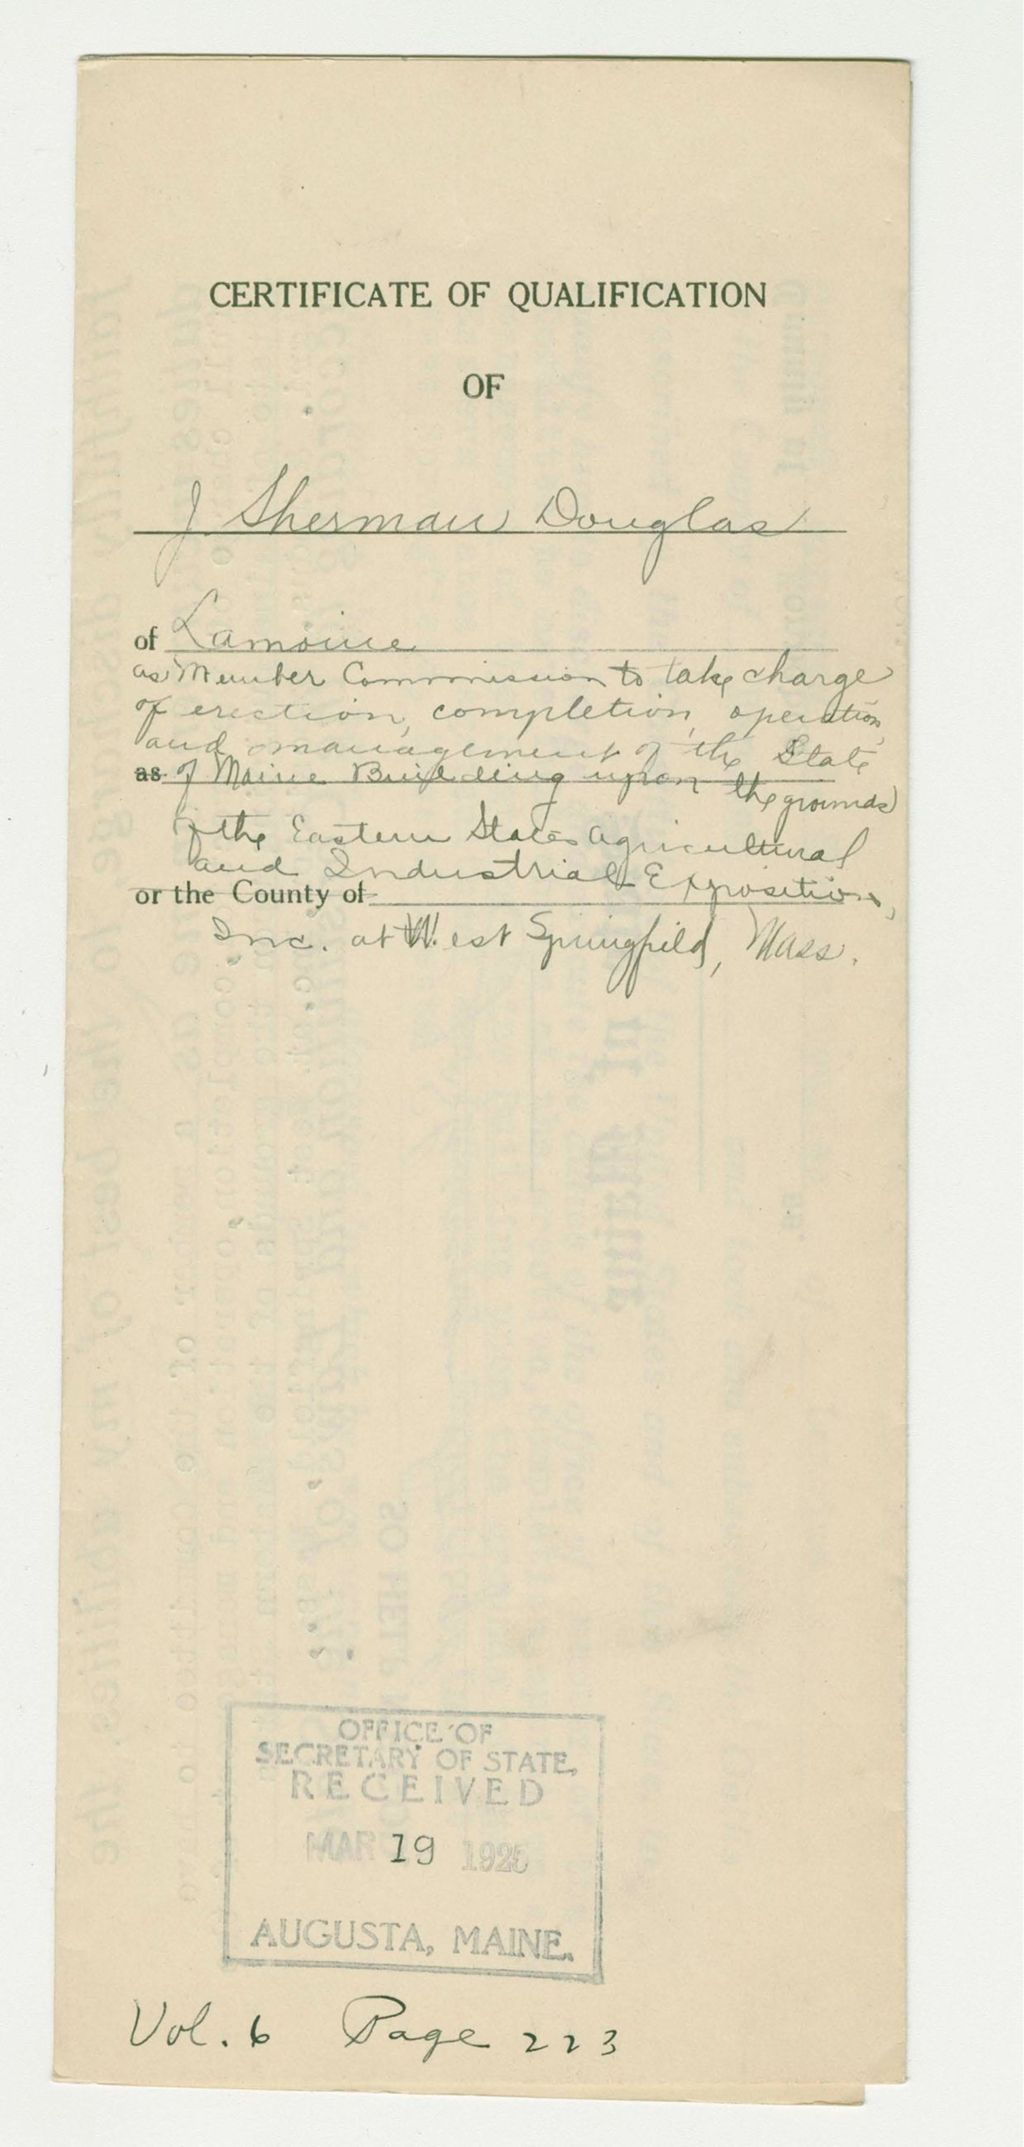 CERTIFICATE OF QUALIFICATION
OF
J Sherman Douglas
of Lamoine
as Member Commission to take charge
of erection, completion, operation,
and management of the State
as of Maine Building upon the grounds
of the Eastern States Agricultural
and Industrial Exposition,
or the County of
Inc. at West Springfield, Mass.
OFFICE OF
SECRETARY OF STATE,
RECEIVED
MAR 19 1925
AUGUSTA, MAINE.
Vol. 6 Page 223